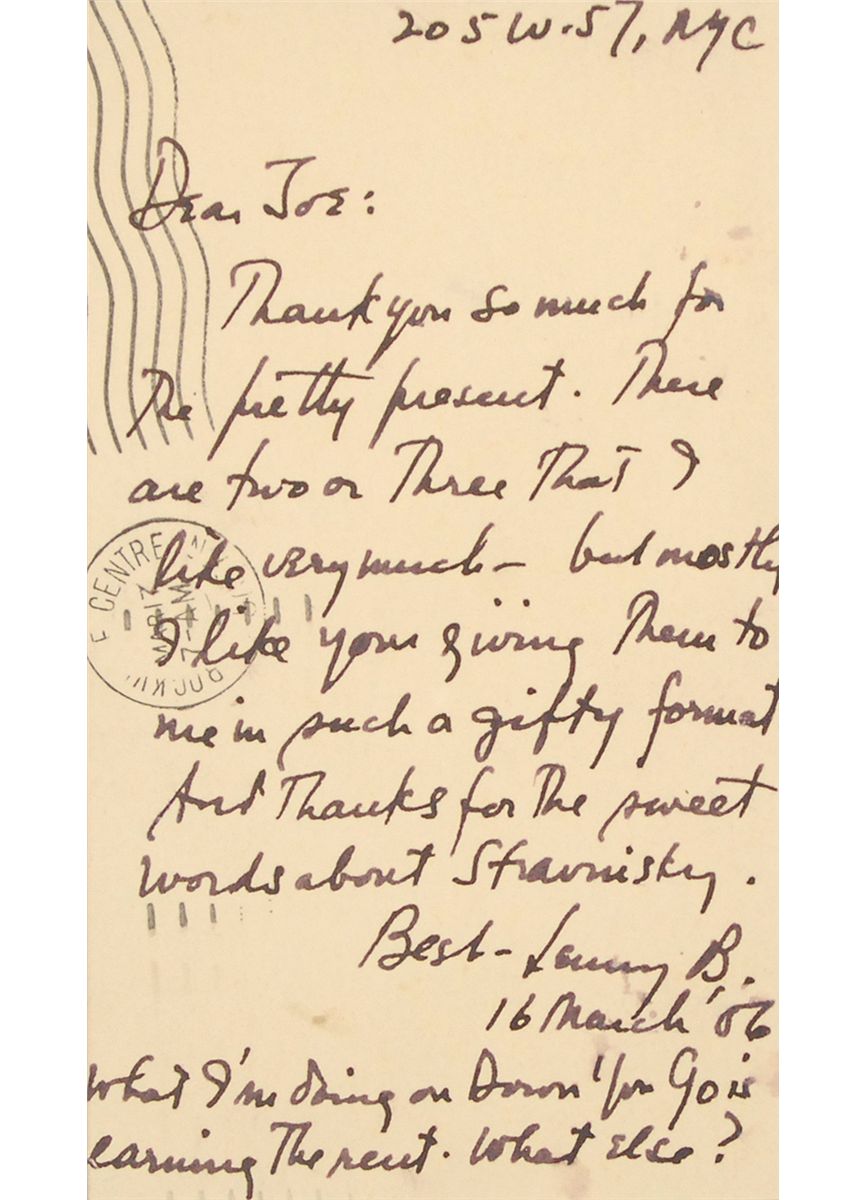 205 W. 57, NYC
Dear Joe:
Thank you so much for
the pretty present. There
are two or three that I
like very much – but mostly
I like your giving them to
me in such a gifty format
And thanks for the sweet
words about Stravinsky.
Best – Lenny B.
16 March '56
What I'm doing on Down You Go is
earning the rent. What else?
CENTRE N.Y.
MAR 17
AM
ROCKVI